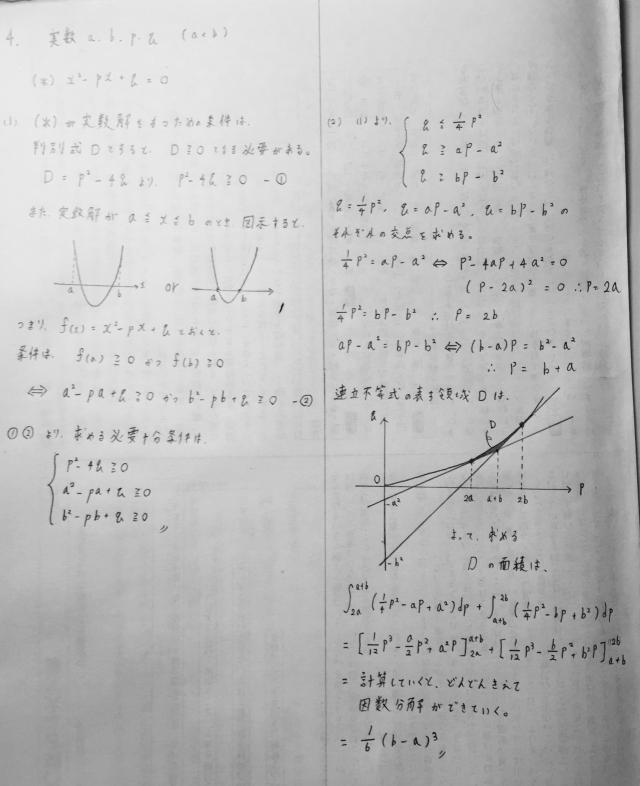 4. 実数 a. b. p. q (a<b)
(*) x² - px + q = 0
(1) (*) が実数解をもつための条件は、
判別式 D とすると、D ≧ 0 である必要がある。
D = p² - 4q より、p² - 4q ≧ 0 - ①
また、実数解が a ≦ x ≦ b のとき 図示すると、
a b x or a b
つまり、f(x) = x² - px + q とおくと、
条件は、f(a) ≧ 0 かつ f(b) ≧ 0
⇔ a² - pa + q ≧ 0 かつ b² - pb + q ≧ 0 - ②
①② より、求める必要十分条件は、
p² - 4q ≧ 0
a² - pa + q ≧ 0
b² - pb + q ≧ 0 〃
(2) (1) より、
q ≦ 1/4 p²
q ≧ ap - a²
q ≧ bp - b²
q = 1/4 p², q = ap - a², q = bp - b² の
それぞれの交点を求める。
1/4 p² = ap - a² ⇔ p² - 4ap + 4a² = 0
(p - 2a)² = 0 ∴ p = 2a
1/4 p² = bp - b² ∴ p = 2b
ap - a² = bp - b² ⇔ (b-a)p = b² - a²
∴ p = b + a
連立不等式の表す領域 D は、
q
D
0
2a a+b 2b p
-a²
-b²
よって、求める
D の面積は、
∫_{2a}^{a+b} (1/4 p² - ap + a²) dp + ∫_{a+b}^{2b} (1/4 p² - bp + b²) dp
= [1/12 p³ - a/2 p² + a²p]_{2a}^{a+b} + [1/12 p³ - b/2 p² + b²p]_{a+b}^{2b}
= 計算していくと、どんどんきえて
因数分解ができていく。
= 1/6 (b - a)³ 〃